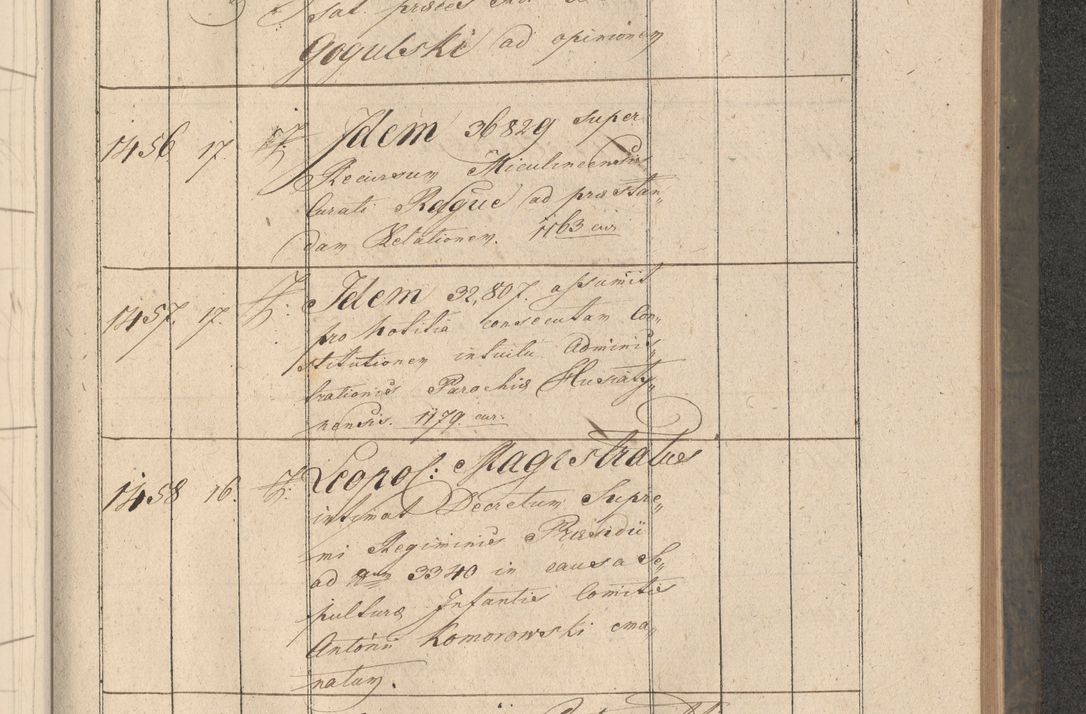 Gogulski ad opinionem
1456 17. Idem 36829 super
Recursum Miculincensis
Curati Rdgue ad præstan„
dam Relationem. 1163 cur
1457. 17. Idem 32,807. assumit
pro notitia consecutam Con„
stitutionem intuitu Adminis„
trationis Parochiæ Husiaty„
nensis. 1179. cur.
1458 16. Leopol: Magistratus
intymat Decretum Supre„
mi Regiminis Præsidii
ad Num 3340 in causa Se„
pulturæ Infantis Comitis
Antonii Komorowski ema„
natum.